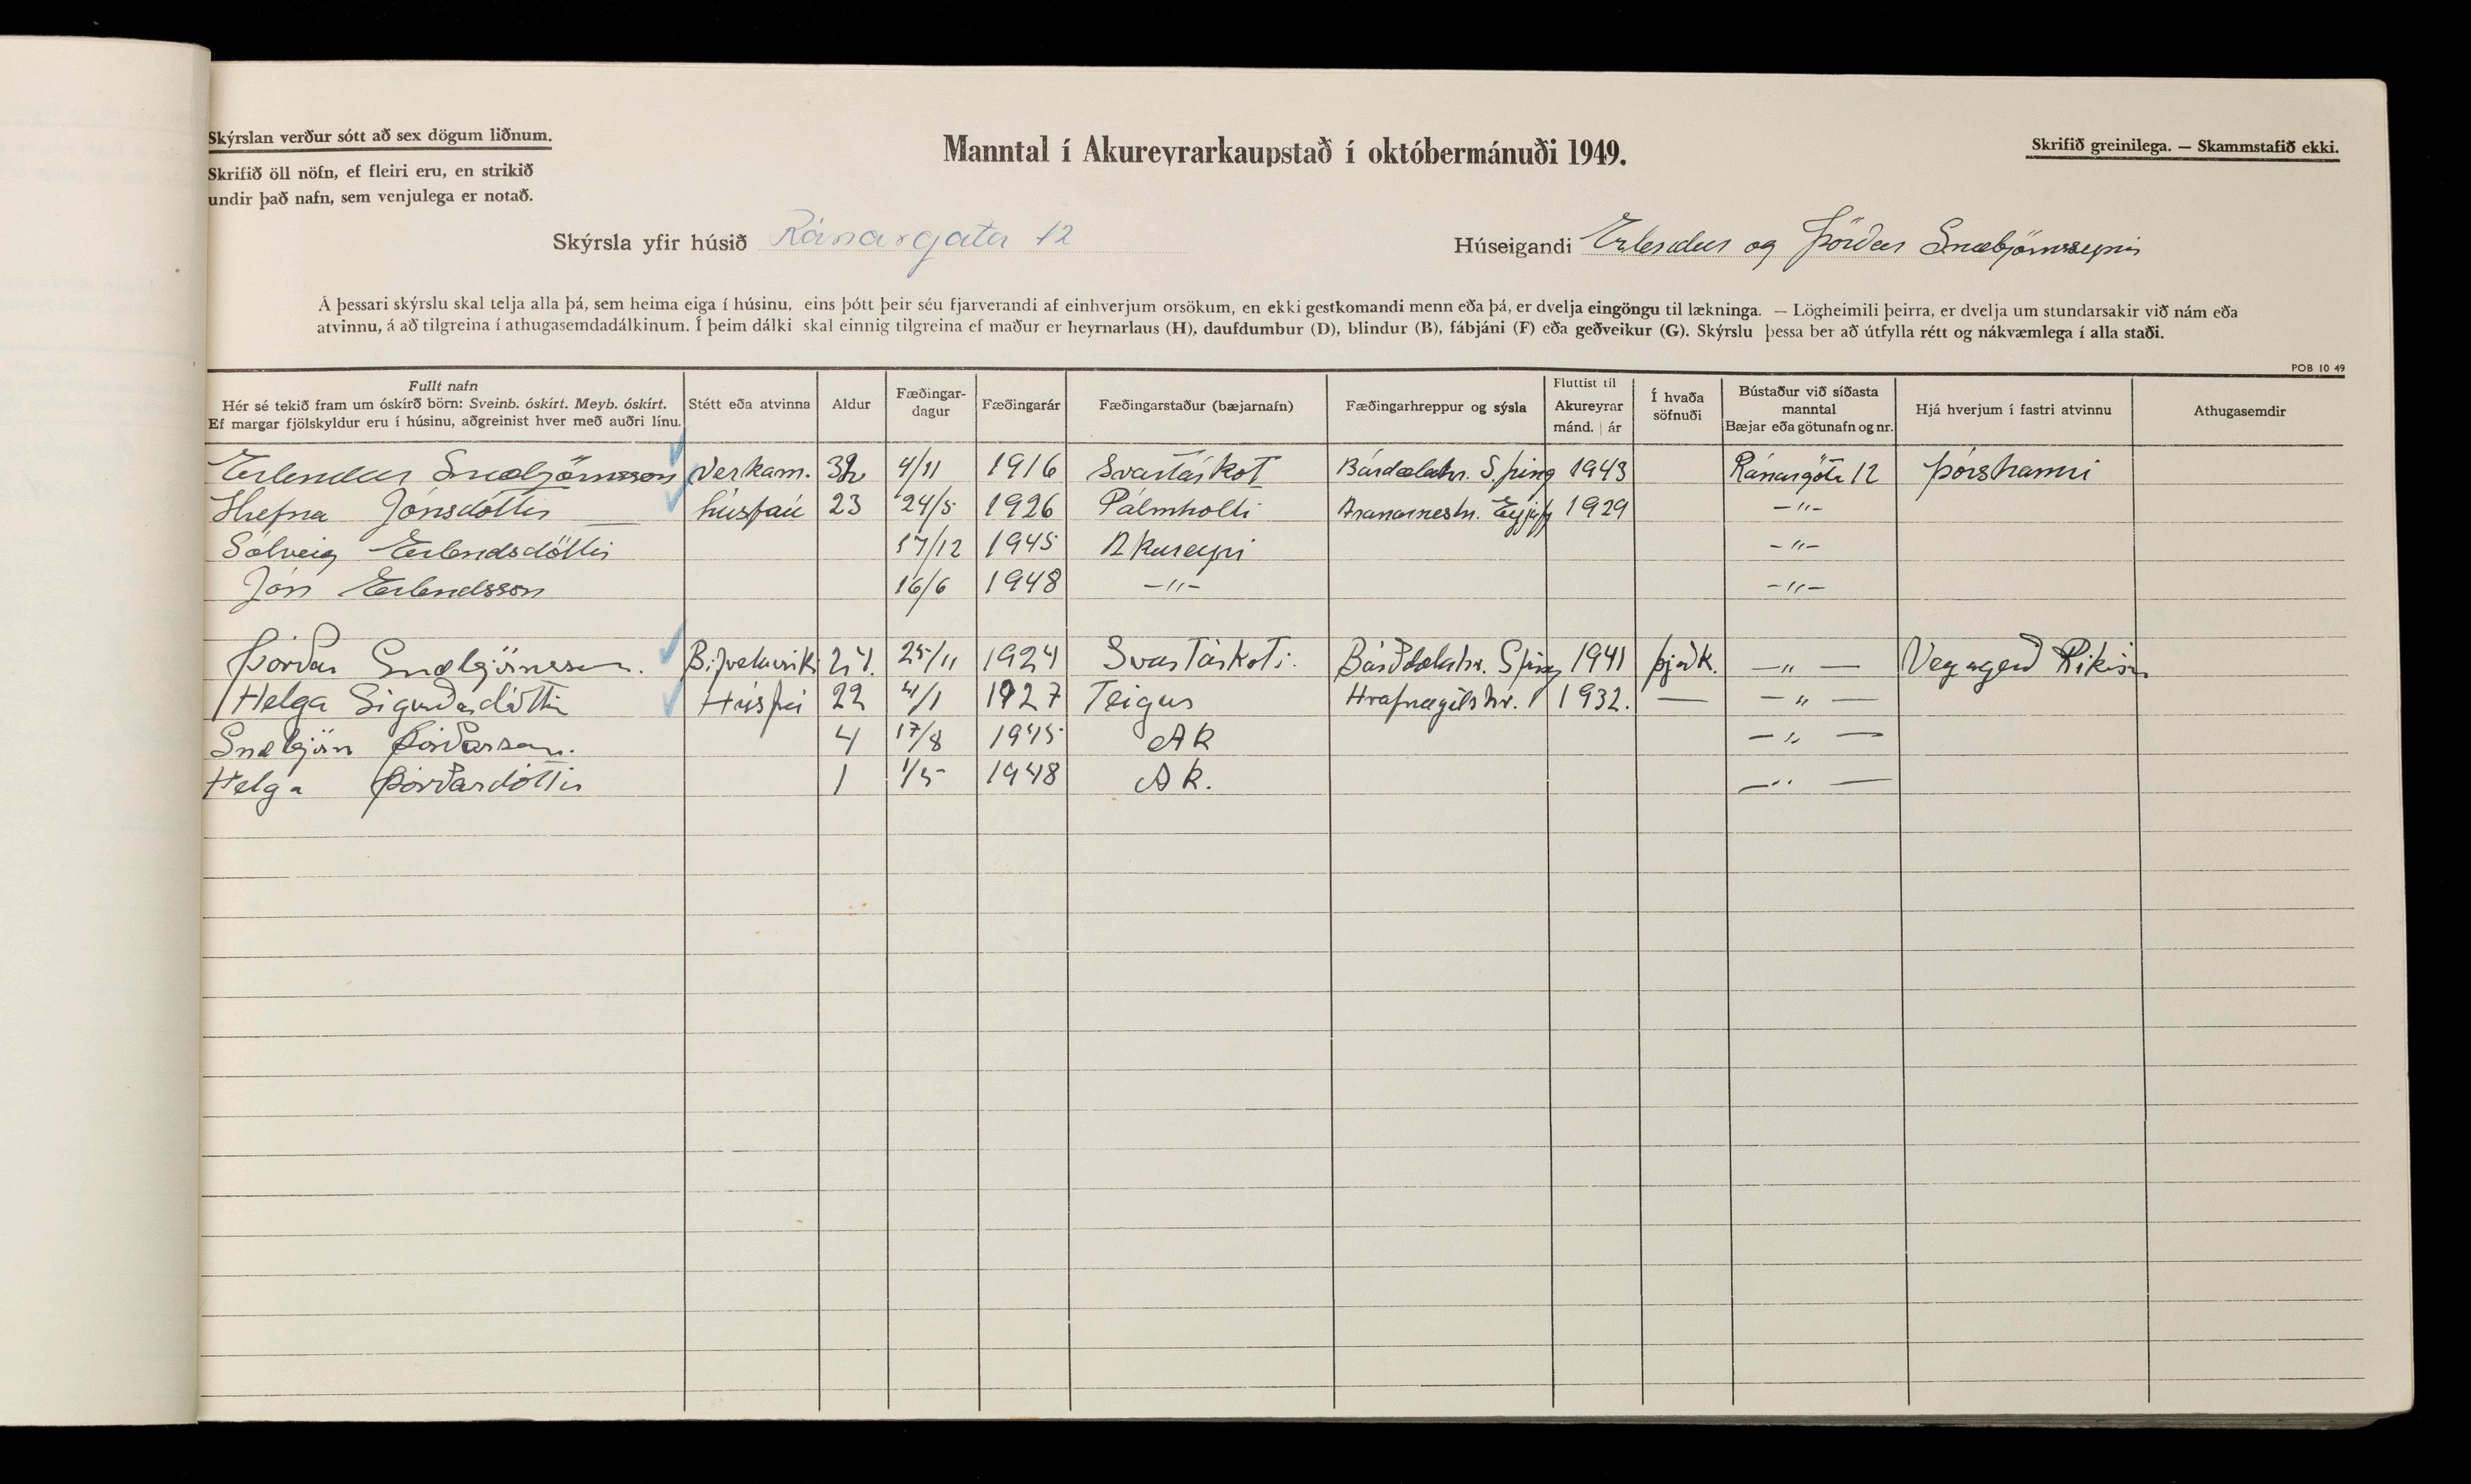 Skýrslan verður sótt að sex dögum liðnum.
Skrifið öll nöfn, ef fleiri eru, en strikið
undir það nafn, sem venjulega er notað.
Manntal í Akureyrarkaupstað í októbermánuði 1949.
Skrifið greinilega. — Skammstafið ekki.
Skýrsla yfir húsið Ránargata 12
Húseigandi Erlendur og Þórður Snæbjörnssynir
Á þessari skýrslu skal telja alla þá, sem heima eiga í húsinu, eins þótt þeir séu fjarverandi af einhverjum orsökum, en ekki gestkomandi menn eða þá, er dvelja eingöngu til lækninga. — Lögheimili þeirra, er dvelja um stundarsakir við nám eða
atvinnu, á að tilgreina í athugasemdadálkinum. Í þeim dálki skal einnig tilgreina ef maður er heyrnarlaus (H), daufdumbur (D), blindur (B), fábjáni (F) eða geðveikur (G). Skýrslu þessa ber að útfylla rétt og nákvæmlega í alla staði.
POB 10 49
Fullt nafn
Hér sé tekið fram um óskírð börn: Sveinb. óskírt. Meyb. óskírt.
Ef margar fjölskyldur eru í húsinu, aðgreinist hver með auðri línu.
Stétt eða atvinna
Aldur
Fæðingar-
dagur
Fæðingarár
Fæðingarstaður (bæjarnafn)
Fæðingarhreppur og sýsla
Fluttist til
Akureyrar
mánd. | ár
Í hvaða
söfnuði
Bústaður við síðasta
manntal
Bæjar eða götunafn og nr.
Hjá hverjum í fastri atvinnu
Athugasemdir
Erlendur Snæbjörnsson Verkam. 32 4/11 1916 Svartárkot Bárdælahr. S.þing 1943 Ránargötu 12 Þórshamri
Hrefna Jónsdóttir húsfrú 23 24/5 1926 Pálmholti Arnarneshr. Eyjafj 1929 —"—
Sólveig Erlendsdóttir 17/12 1945 Akureyri —"—
Jón Erlendsson 16/6 1948 —"— —"—
Þórður Snæbjörnsson. B:fvélavirki 24. 25/11 1924 Svartárkoti. Bárðdælahr. S þing 1941 þjóðk. —"— Vegagerð Ríkisin
Helga Sigurðardóttir Húsfrú 22 4/1 1927 Teigur Hrafnagilshr. 1932. — —"—
Snæbjörn Þórðarson. 4 17/8 1945 AK —"—
Helga Þórðardóttir 1 1/5 1948 Ak. —"—